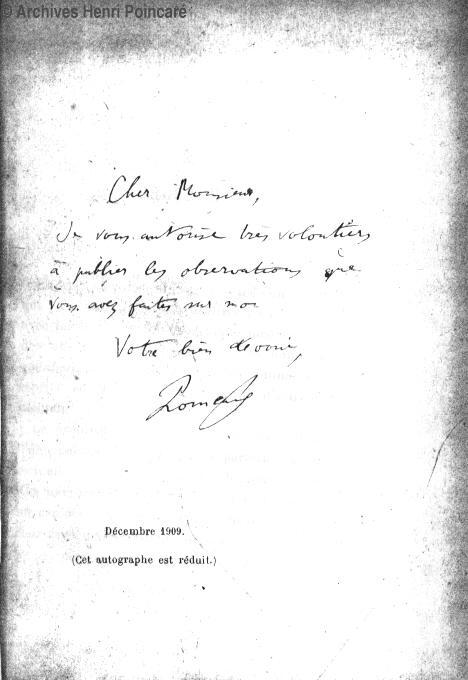 © Archives Henri Poincaré
Cher Monsieur,
Je vous autorise très volontiers
à publier les observations que
vous avez faites sur moi
Votre bien dévoué,
Poincaré
Décembre 1909.
(Cet autographe est réduit.)